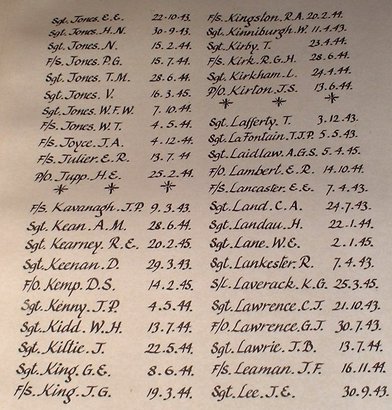 Sgt. Jones. E.E. 22-10-43.
Sgt. Jones. H.N 30-9-43.
Sgt. Jones. N. 15.2.44.
F/s. Jones. P.G. 15.7.44
Sgt. Jones. T.M. 28.6.44.
Sgt. Jones. V. 16.3.45.
Sgt. Jones. W.F.W. 7.10.44.
F/s. Jones. W.T. 4.5.44.
F/s. Joyce. J.A. 4-12-44.
F/s. Julier. E.R. 13.7.44
P/O. Jupp. H.E. 25.2.44.
F/s. Kavanagh. J.P. 9.3.43.
Sgt. Kean. A.M. 28.6.44.
Sgt. Kearney. R.E. 20.2.45.
Sgt. Keenan. D. 29.3.43.
F/O. Kemp. D.S. 14.2.45.
Sgt. Kenny. J.P. 4.5.44.
Sgt. Kidd. W.H. 13.7.44.
Sgt. Killie. J. 22.5.44.
Sgt. King. G.E. 8.6.44.
F/s. King. J.G. 19.3.44.
F/s. Kingston. R.A. 20.2.44.
Sgt. Kinniburgh. W. 11.4.43.
Sgt. Kirby. T. 23.4.44.
F/s. Kirk. R.G.H. 28.6.44.
Sgt. Kirkham. L. 24.4.44.
P/O. Kirton. J.S. 13.6.44.
Sgt. Lafferty. T. 3.12.43.
Sgt. La Fontain. T.J.P. 5.5.43.
Sgt. Laidlaw. A.G.S. 5.4.45.
F/O. Lambert. E.R. 14.10.44.
F/s. Lancaster. E.E. 7.4.43.
Sgt. Land. C.A. 24.7.43.
Sgt. Landau. H. 22.1.44.
Sgt. Lane. W.E. 2.1.45.
Sgt. Lankester. R. 7.4.43.
S/L. Laverack. K.G. 25.3.45.
Sgt. Lawrence. C.T. 21.10.43.
F/O. Lawrence. G.J. 30.7.43.
Sgt. Lawrie. J.B. 13.7.44.
F/s. Leaman. J.F. 16.11.44.
Sgt. Lee. J.E. 30.9.43.